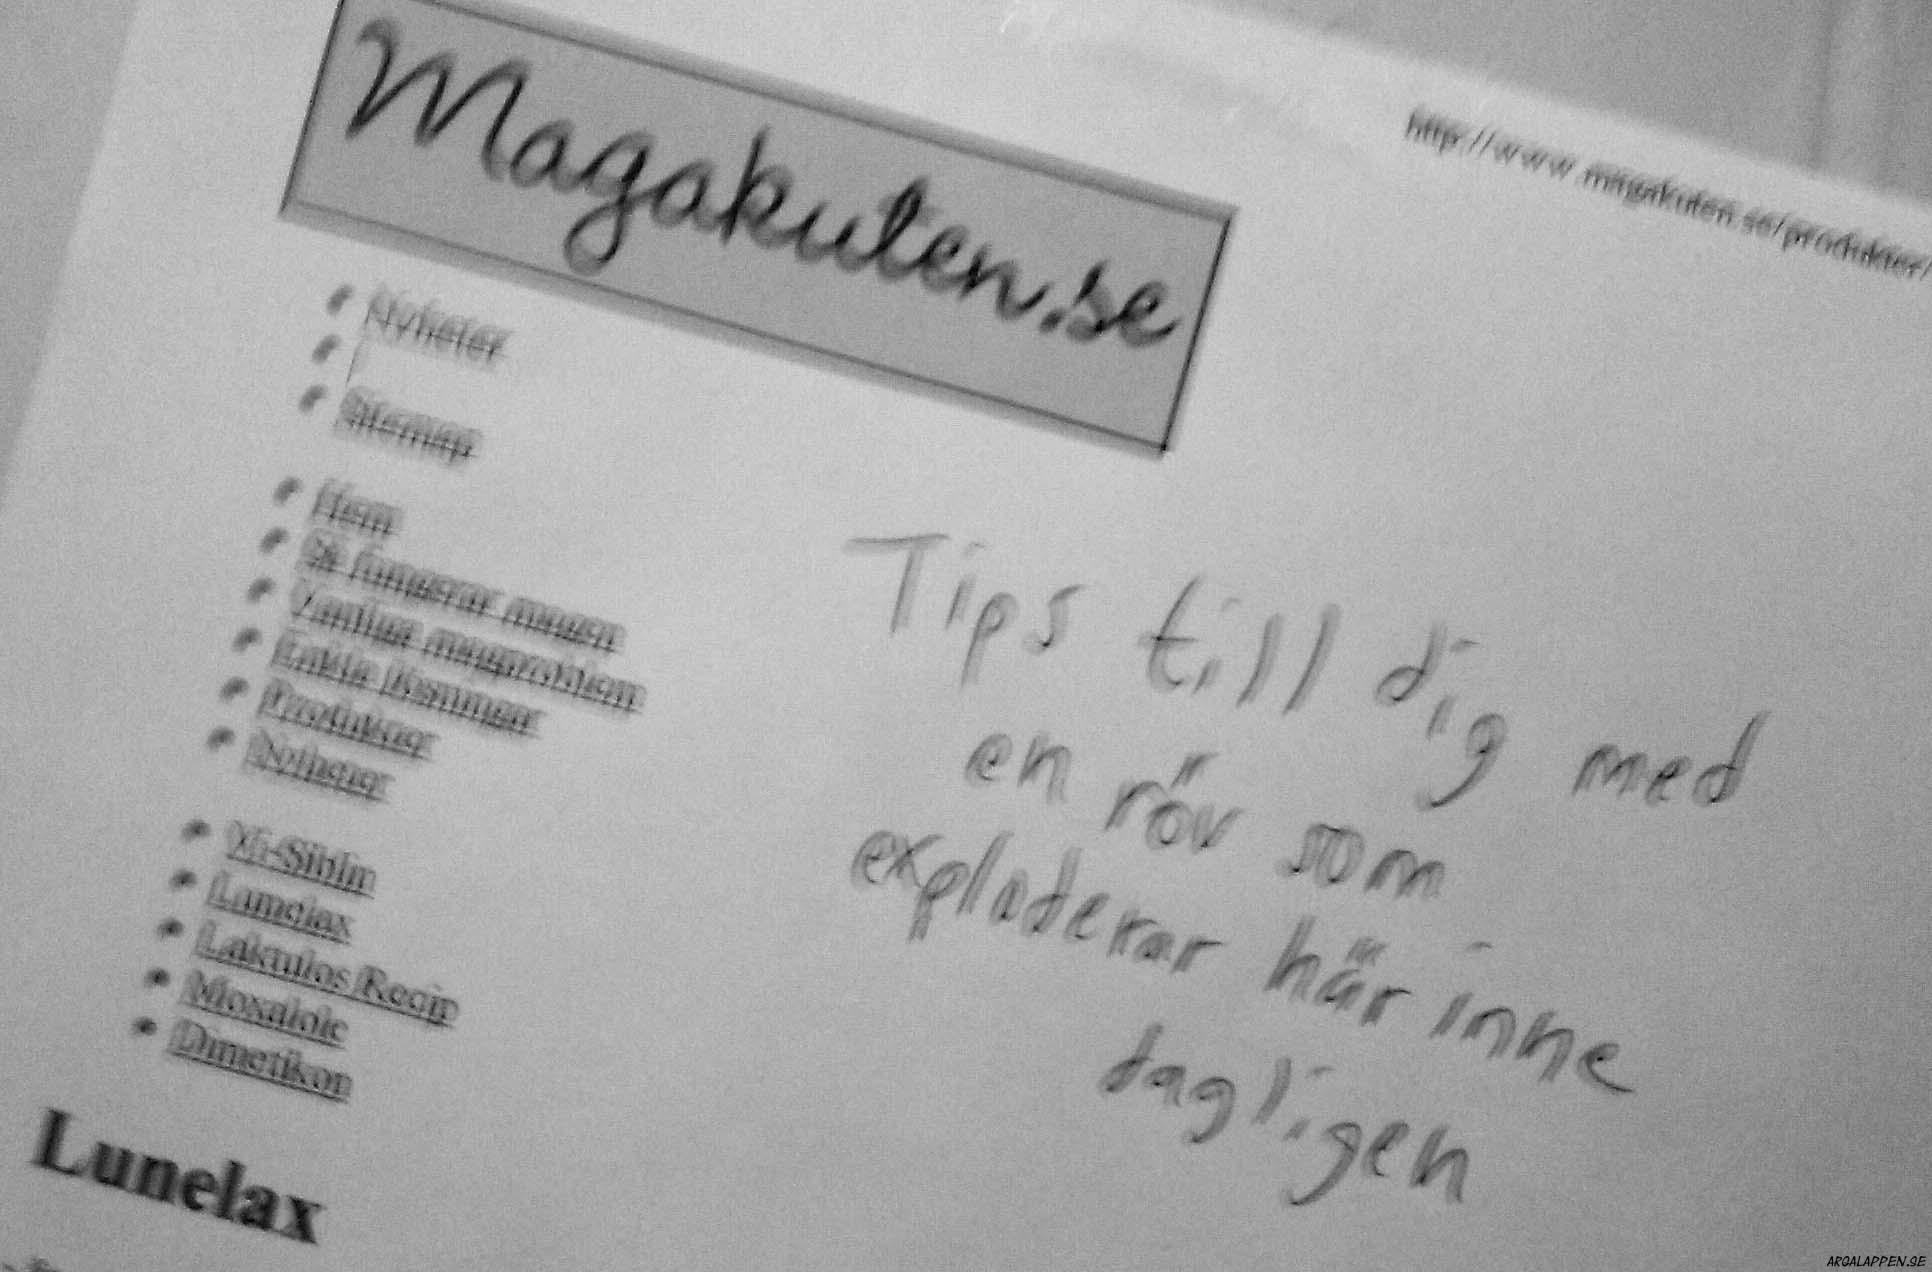 Magakuten.se
http://www.magakuten.se/produkter/
Nyheter
Sitemap
Hem
Så fungerar magen
Vanliga magproblem
Enkla lösningar
Produkter
Nyheter
Vi-Siblin
Lunelax
Laktulos Recip
Moxalole
Dimetikon
Tips till dig med
en röv som
exploderar här inne
dagligen
Lunelax
ARGALAPPEN.SE